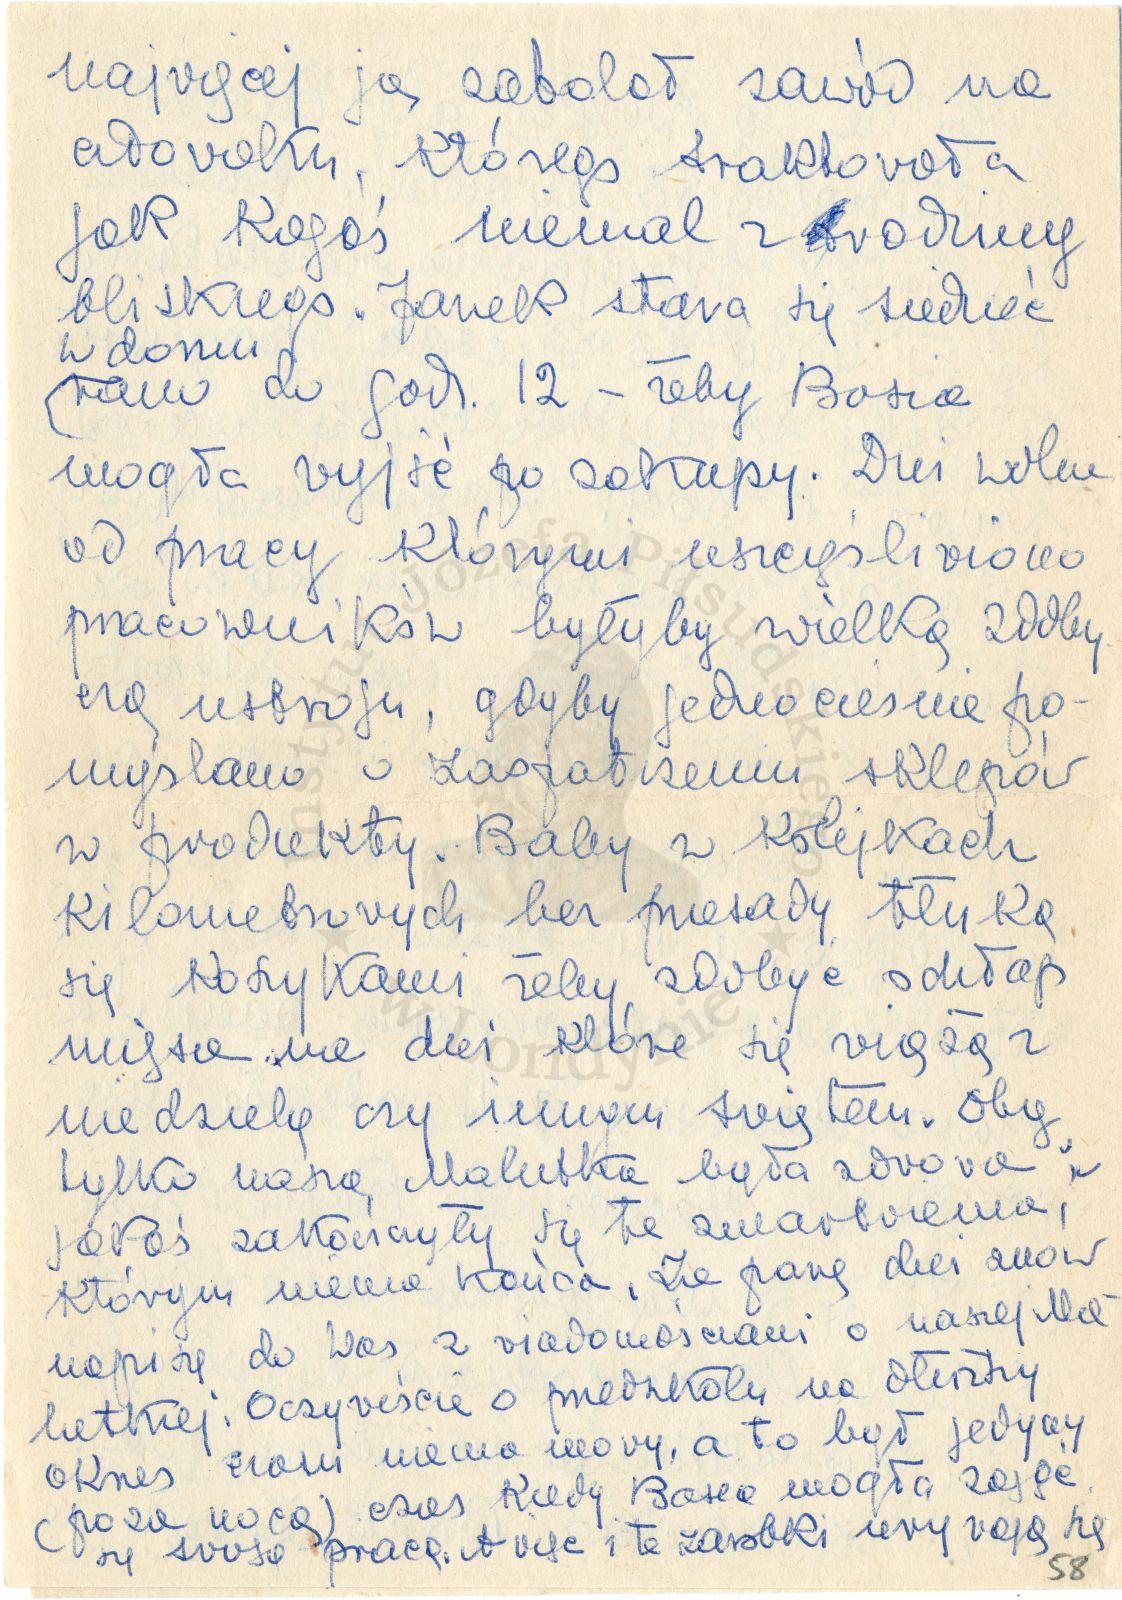 najwięcej ją zabolał zawód na
adwokatu, którego traktowała
jak kogoś niemal z rodziny
bliskiego. Janek stara się siedzieć
w domu
(rano do godz. 12 – żeby Basia
mogła wyjść po zakupy. Dni wolne
od pracy którymi uszczęśliwiono
pracowników byłyby wielką zdoby
czą ustroju, gdyby jednocześnie po-
myślano o zaopatrzeniu sklepów
w produkty. Baby w kolejkach
kilometrowych bez przesady tłuką
się koszykami żeby zdobyć ochłap
mięsa na dni które się wiążą z
niedzielą czy innym świętem. Oby
tylko nasza Malutka była zdrowa i
jakoś zakończyły się te zmartwienia,
którym niema końca. Za parę dni znów
napiszę do Was z wiadomościami o naszej Ma
lutkiej. Oczywiście o przedszkolu na dłuższy
okres czasu niema mowy, a to był jedyny
(poza nocą) czas kiedy Basia mogła zająć
się swoją pracą. A więc i te zarobki urywają się
58
Instytut Józefa Piłsudskiego
w Londynie